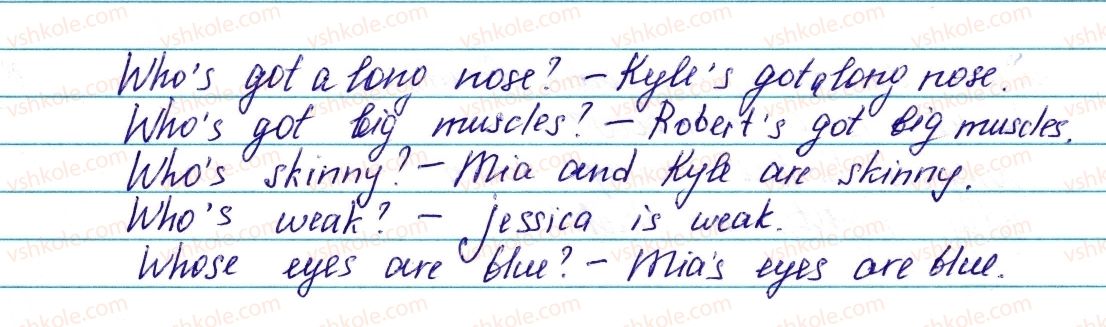 Who's got a long nose? – Kyle's got a long nose.
Who's got big muscles? – Robert's got big muscles.
Who's skinny? – Mia and Kyle are skinny.
Who's weak? – Jessica is weak.
Whose eyes are blue? – Mia's eyes are blue.